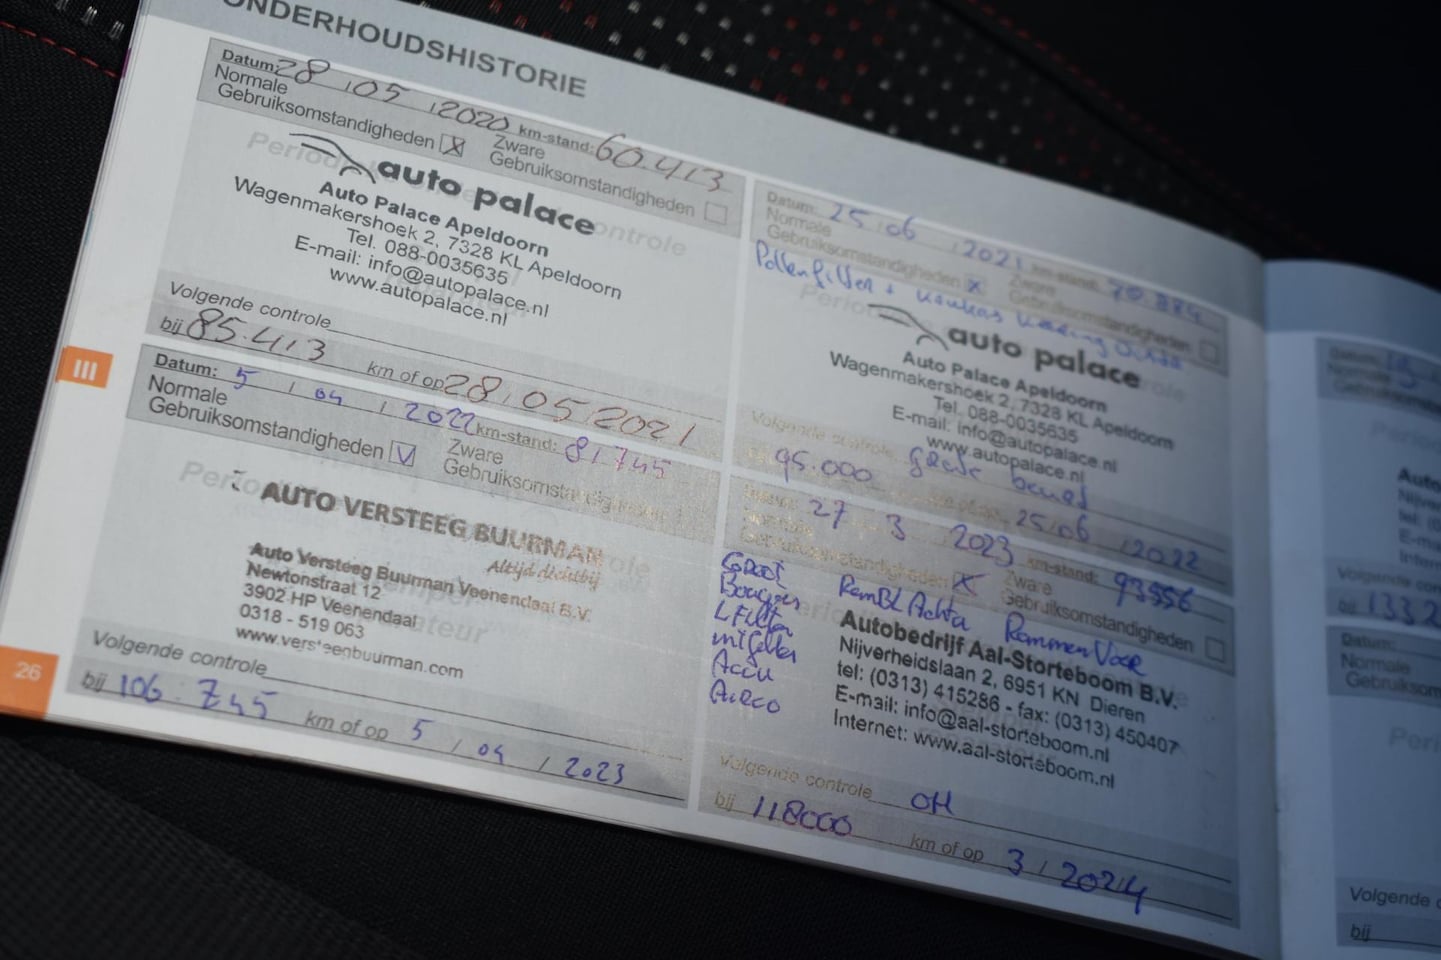 ONDERHOUDSHISTORIE
Datum: 28 / 05 / 2020 km-stand: 60.413
Normale Gebruiksomstandigheden X Zware Gebruiksomstandigheden
auto palace
Auto Palace Apeldoorn
Wagenmakershoek 2, 7328 KL Apeldoorn
Tel. 088-0035635
E-mail: info@autopalace.nl
www.autopalace.nl
Volgende controle
bij 85.413 km of op 28/05/2021
Datum: 25 / 06 / 2021 km-stand:
Normale Gebruiksomstandigheden X Zware Gebruiksomstandigheden
Pollenfilter +
auto palace
Auto Palace Apeldoorn
Wagenmakershoek 2, 7328 KL Apeldoorn
Tel. 088-0035635
E-mail: info@autopalace.nl
www.autopalace.nl
Volgende controle Grote beurt
95.000 25/06 / 2022
III
Datum: 5 / 04 / 2022 km-stand: 81745
Normale Gebruiksomstandigheden V Zware Gebruiksomstandigheden
AUTO VERSTEEG BUURMAN
Altijd dichtbij
Auto Versteeg Buurman Veenendaal B.V.
Newtonstraat 12
3902 HP Veenendaal
0318 - 519 063
www.versteegbuurman.com
Volgende controle
bij 106.745 km of op 5 / 04 / 2023
27 - 3 2023 km-stand: 93556
Gebruiksomstandigheden X Zware Gebruiksomstandigheden
Groot
Bougies
L Filter
Accu
Airco
Remmen Voor
Autobedrijf Aal-Storteboom B.V.
Nijverheidslaan 2, 6951 KN Dieren
tel: (0313) 415286 - fax: (0313) 450407
E-mail: info@aal-storteboom.nl
Internet: www.aal-storteboom.nl
Volgende controle OH
bij 118000 km of op 3 / 2024
26
Datum:
Normale
Volgende controle
bij 1332
Datum:
Normale
Gebruiksom
Volgende
bij